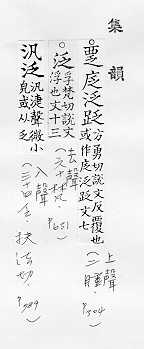 集韻
覂㡴泛𨀎方勇切說文反覆也
或作㡴泛𨀎文七
上聲
(二腫)
P304
。泛孚梵切說文
浮也文十三
去聲
(六十梵)
P651
汎泛汎漣聲微小
皃或从乏
入聲
(三十四乏)扶法切
P789